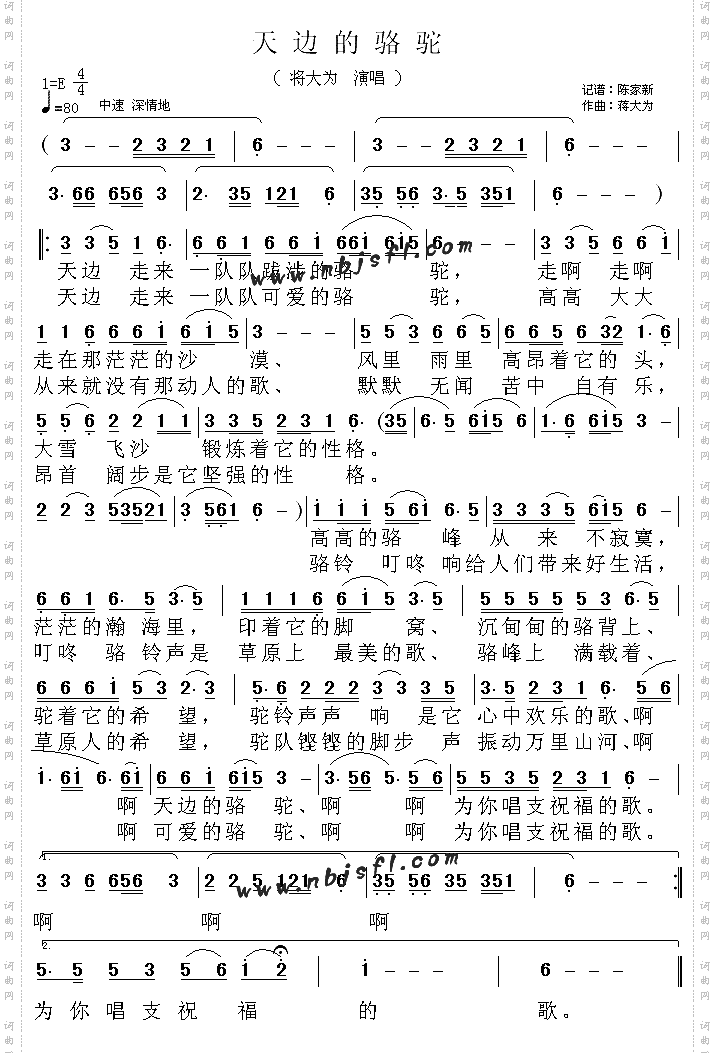 天边的骆驼
（ 将大为 演唱 ）
1=E 4/4
♩=80 中速 深情地
记谱：陈家新
作曲：蒋大为
( 3 - - 2 3 2 1 | 6 - - - | 3 - - 2 3 2 1 | 6 - - - |
3· 66 656 3 | 2· 35 121 6 | 35 56 3·5 351 | 6 - - - )
‖: 3 3 5 1 6· | 6 6 1 6 6 i 66i 6i5 | 6 - - - | 3 3 5 6 6 i |
天边 走来 一队队跋涉的骆 驼， 走啊 走啊
天边 走来 一队队可爱的骆 驼， 高高 大大
www.nbjsfl.com
1 1 6 6 6 i 6 i 5 | 3 - - - | 5 5 3 6 6 5 | 6 6 5 6 32 1·6 |
走在那茫茫的沙 漠、 风里 雨里 高昂着它的 头，
从来就没有那动人的歌、 默默 无闻 苦中 自有 乐，
5 5 6 2 2 1 1 | 3 3 5 2 3 1 6· (35 | 6· 5 6 6i5 6 | 1·6 6i5 3 - |
大雪 飞沙 锻炼着它的性格。
昂首 阔步是它坚强的性 格。
2 2 3 53521 | 3 561 6 - ) | i i i 5 6i 6·5 | 3 3 3 5 6i5 6 - |
高高的骆 峰 从 来 不寂寞，
骆铃 叮咚 响给人们带来好生活，
6 6 i 6· 5 3·5 | 1 1 1 6 6 i 5 3 | 5 5 5 5 5 6 5 3 |
茫茫的瀚 海里， 印着它的脚 窝、 沉甸甸的骆背上、
叮咚 骆 铃声是 草原上 最美的歌、 骆峰上 满载着、
6 6 6 i 5 3 2·3 | 5·6 2 2 2 3 3 5 2 | 3·5 2 3 1 6· 5 6 |
驼着它的希 望， 驼铃声声 响 是它 心中欢乐的歌、啊
草原人的希 望， 驼队铿铿的脚步 声 振动万里山河、啊
i· 6i 6· 6i | 6 6 i 6i5 3 - | 3·56 5 5·5 | 5 5 3 5 2 3 1 6 - |
啊 天边的骆 驼、啊 啊 为你唱支祝福的歌。
啊 可爱的骆 驼、啊 啊 为你唱支祝福的歌。
www.nbjsfl.com
1.
3 3 6 656 3 | 2 2 5 121 6 | 35 56 35 351 | 6 - - - :‖
啊 啊 啊
2.
5· 5 5 3 5 6 i 2 | i - - - | 6 - - - ‖
为 你 唱 支 祝 福 的 歌。
词曲网